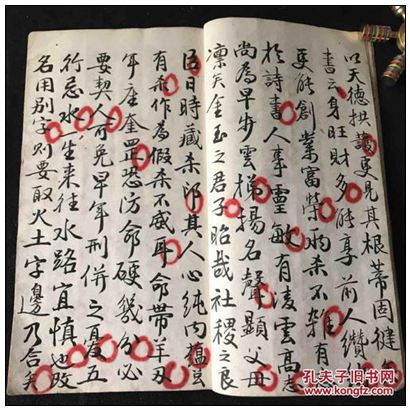 以天德拱護更見其根蒂固健
書云身旺財多能享前人
更能創業富榮兩杀不雜有
於詩書人事靈敏有凌雲高志
尚為早步雲梯揚名聲顯父母
凛矣金玉之君子昭哉社稷之良
臣日時藏杀印其人心純内蕴
有杀作為假杀不威耳命帶羊刃
年座奎罡恐防命硬幾分必
要契人可免早年刑併之憂五
行忌水生来往水路宜慎也改
名用别字則要取火土字邊乃合矣
孔夫子旧书网